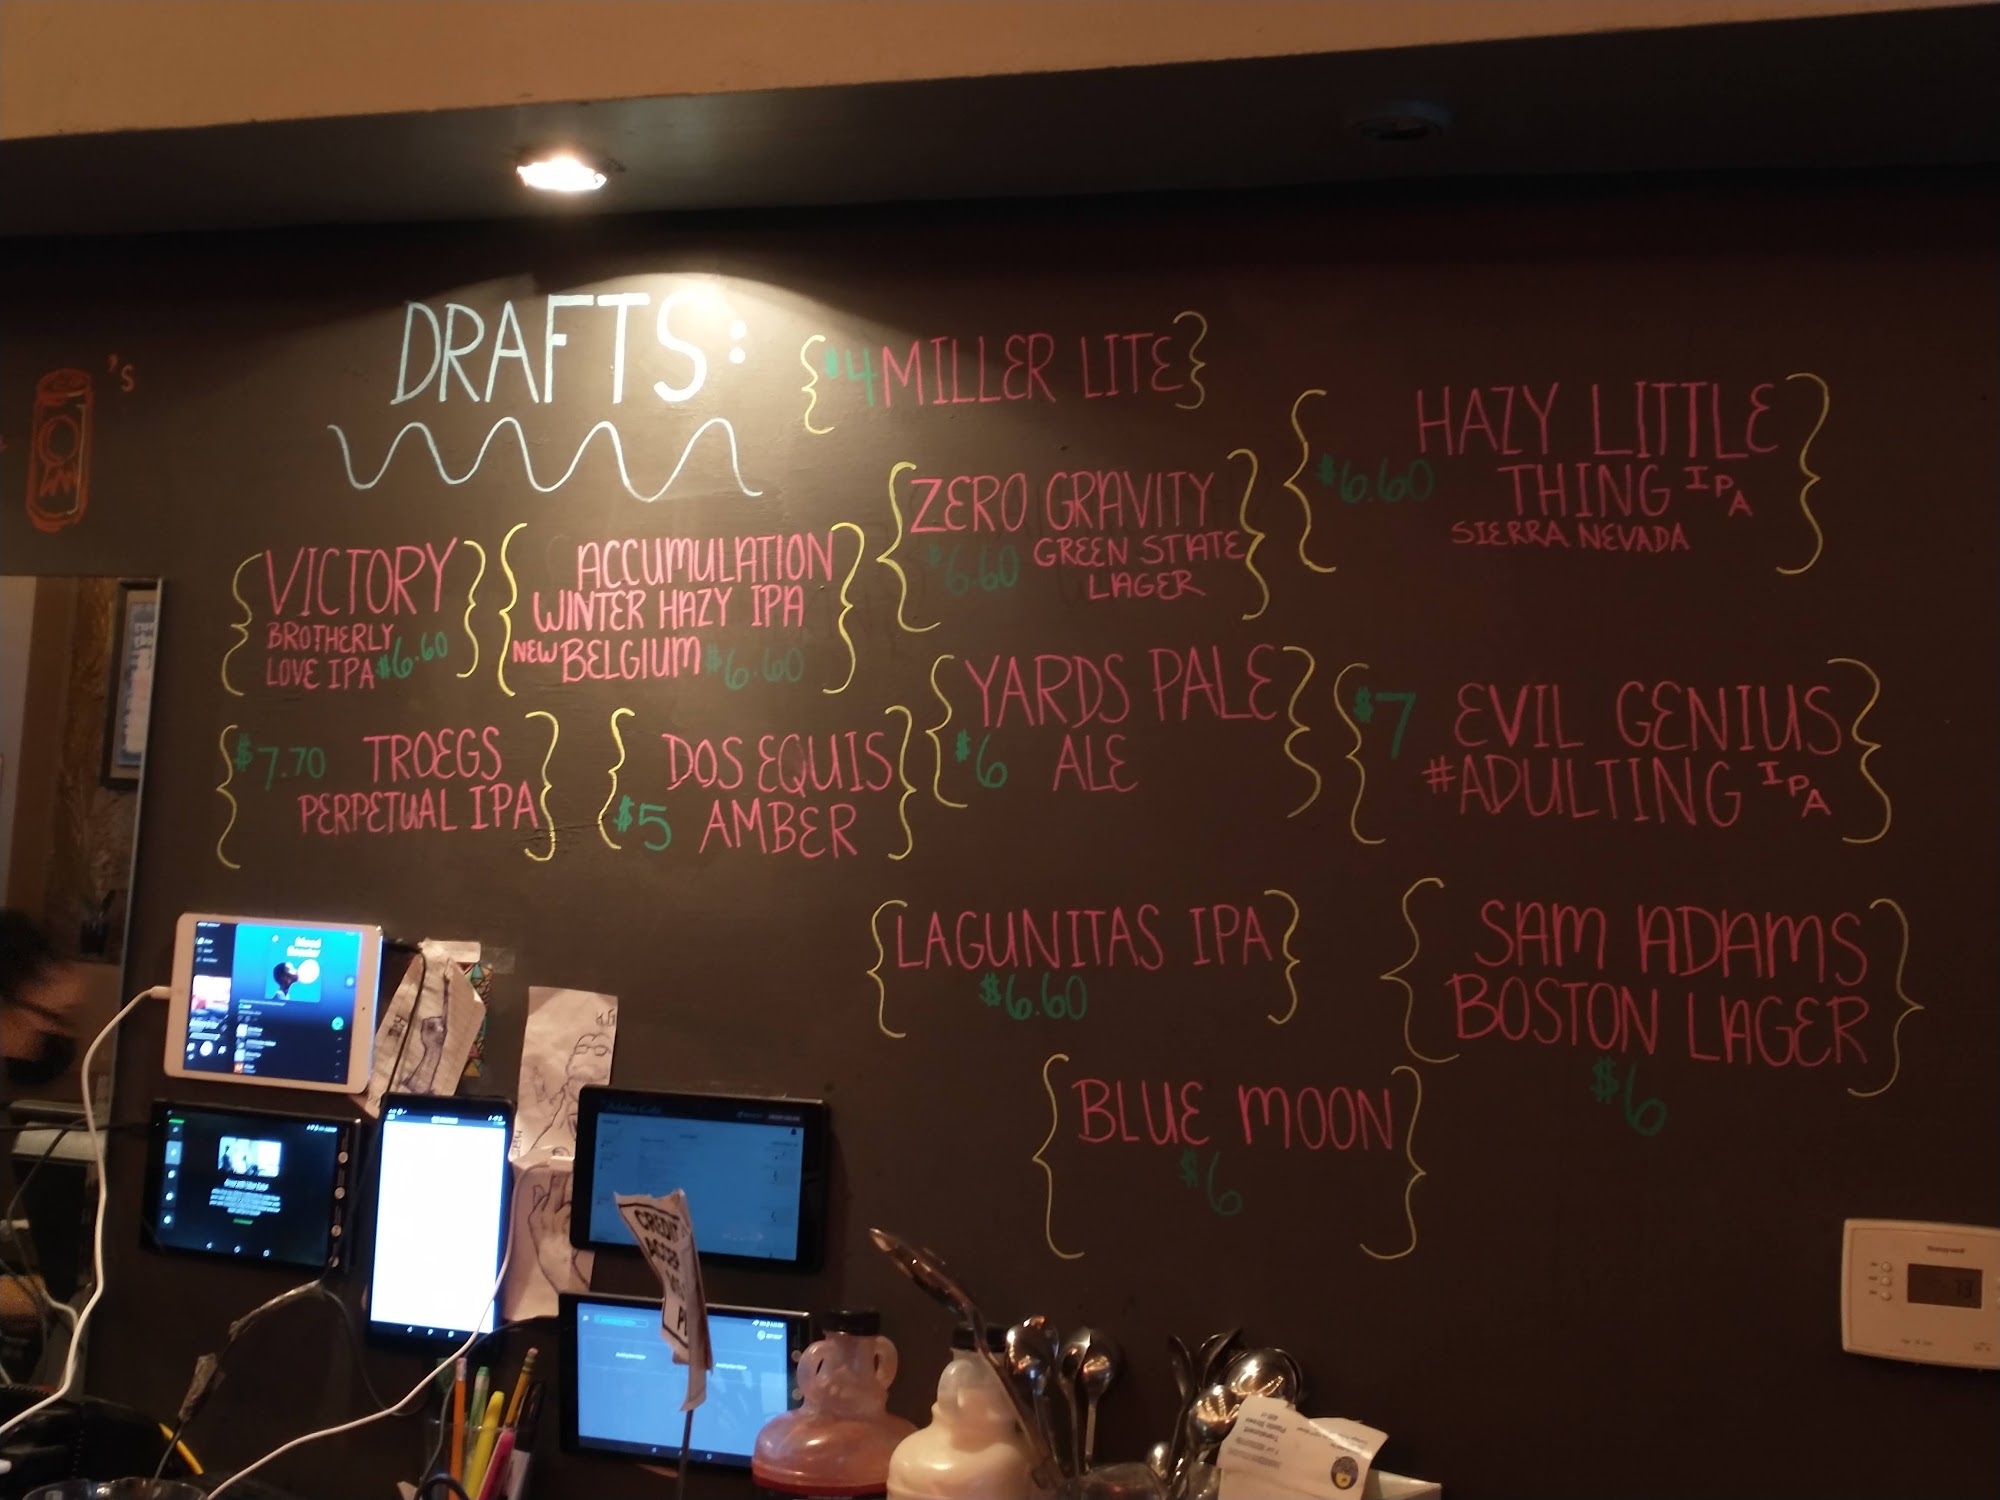 DRAFTS:
'S
$4 MILLER LITE
HAZY LITTLE
$6.60 THING IPA
SIERRA NEVADA
ZERO GRAVITY
$6.60 GREEN STATE
LAGER
VICTORY
BROTHERLY
LOVE IPA $6.60
ACCUMULATION
WINTER HAZY IPA
NEW BELGIUM $6.60
YARDS PALE
$6 ALE
$7 EVIL GENIUS
#ADULTING IPA
$7.70 TROEGS
PERPETUAL IPA
DOS EQUIS
$5 AMBER
LAGUNITAS IPA
$6.60
SAM ADAMS
BOSTON LAGER
$6
BLUE MOON
$6
CREDIT
Honeywell
73